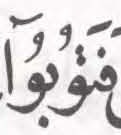 فَتُوبُوٓا